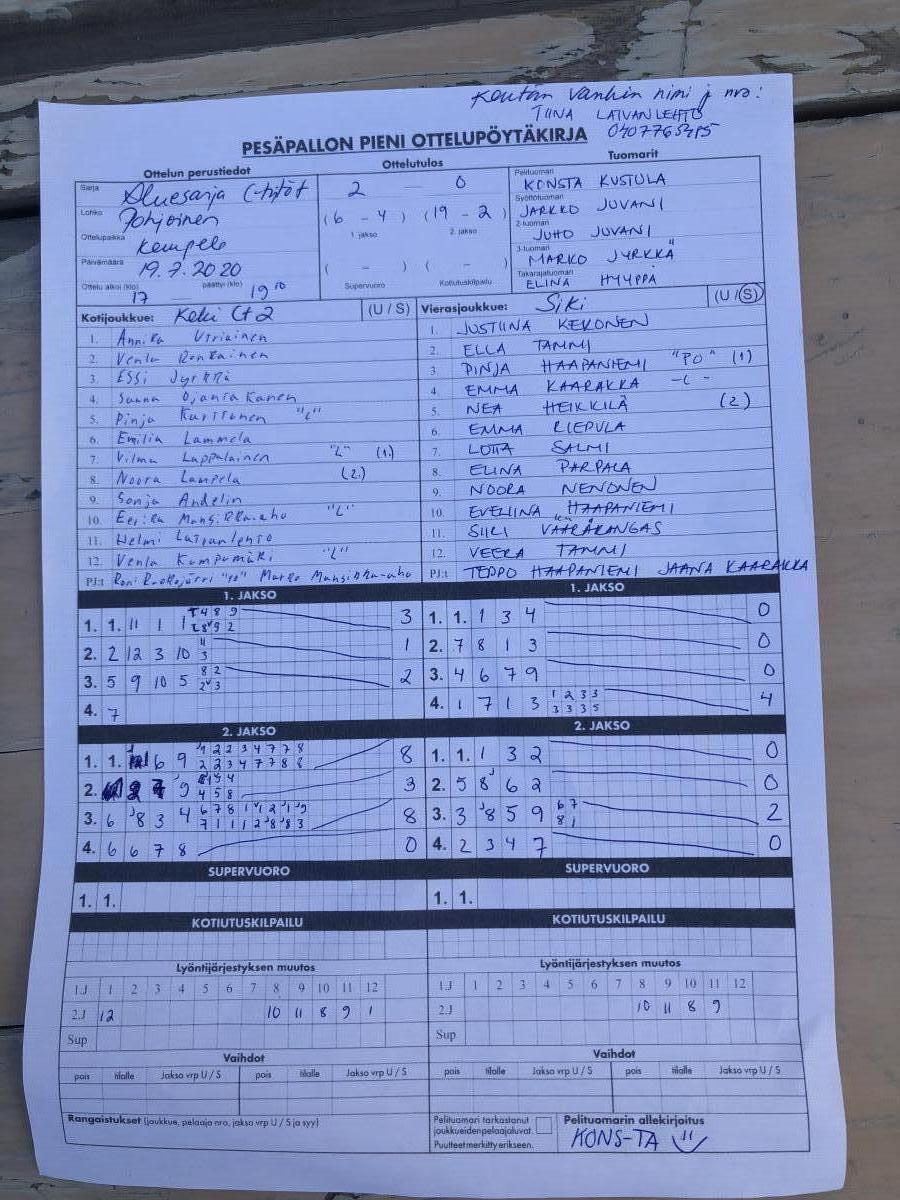 Kentän vanhin nimi ja nro:
TIINA LAIVANLEHTO
PESÄPALLON PIENI OTTELUPÖYTÄKIRJA
Ottelun perustiedot
Ottelutulos
Tuomarit
Sarja
Aluesarja C-tytöt
2 0
Pelituomari
KONSTA KUSTULA
Lohko
Pohjoinen
(6 - 4) (19 - 2)
1. jakso 2. jakso
Syöttötuomari
JARKKO JUVANI
Ottelupaikka
Kempele
2-tuomari
JUHO JUVANI
Päivämäärä
19.7.2020
( - ) ( - )
3-tuomari
MARKO JYRKKÄ
Ottelu alkoi (klo) 17 päättyi (klo) 19 10
Supervuoro Kotiutuskilpailu
Takarajatuomari
ELINA HYYPPÄ
Kotijoukkue: Keki Ct2 (U / S)
1. Annika Utriainen
2. Venla Ronkainen
3. Essi Jyrkkä
4. Sanna Ojantakanen
5. Pinja Karttunen "L"
6. Emilia Lammela
7. Vilma Lappalainen "L" (1.)
8. Noora Lampela (2.)
9. Sonja Andelin
10. Eerika Mansikka-aho "L"
11. Helmi Laivanlehto
12. Venla Kumpumäki "L"
PJ:t Roni Ruokojärvi "PO" Marko Mansikka-aho
Vierasjoukkue: Siki (U / S)
1. JUSTIINA KEKONEN
2. ELLA TAMMI
3. PINJA HAAPANIEMI "PO" (1)
4. EMMA KAARAKKA -L-
5. NEA HEIKKILÄ (2)
6. EMMA RIEPULA
7. LOTTA SALMI
8. ELINA PARPALA
9. NOORA NENONEN
10. EVELIINA HAAPANIEMI
11. SIIRI VÄÄRÄKANGAS
12. VEERA TAMMI
PJ:t TEPPO HAAPANIEMI JAANA KAARAKKA
1. JAKSO
1. 1. 11 1 1 3
2. 2 12 3 10 4 3 1
3. 5 9 10 5 8 2 2 3 2
4. 7
1. JAKSO
1. 1. 1 3 4 0
2. 7 8 1 3 0
3. 4 6 7 9 0
4. 1 7 1 3 1 2 3 3 3 3 3 5 4
2. JAKSO
1. 1. 6 9 1 2 2 3 4 7 7 8 2 2 3 4 7 7 8 8 8
2. 9 4 5 8 3
3. 6 8 3 4 8
4. 6 6 7 8 0
2. JAKSO
1. 1. 1 3 2 0
2. 5 8 6 2 0
3. 3 8 5 9 6 7 8 1 2
4. 2 3 4 7 0
SUPERVUORO
1. 1.
SUPERVUORO
1. 1.
KOTIUTUSKILPAILU
KOTIUTUSKILPAILU
Lyöntijärjestyksen muutos
1.J 1 2 3 4 5 6 7 8 9 10 11 12
2.J 12 10 11 8 9 1
Sup
Lyöntijärjestyksen muutos
1.J 1 2 3 4 5 6 7 8 9 10 11 12
2.J 10 11 8 9
Sup
Vaihdot
pois tilalle Jakso vrp U / S pois tilalle Jakso vrp U / S
Vaihdot
pois tilalle Jakso vrp U / S pois tilalle Jakso vrp U / S
Rangaistukset (joukkue, pelaaja nro, jakso vrp U / S ja syy)
Pelituomari tarkastanut
joukkueiden pelaajaluvat.
Puutteet merkitty erikseen.
Pelituomarin allekirjoitus
KONS-TA